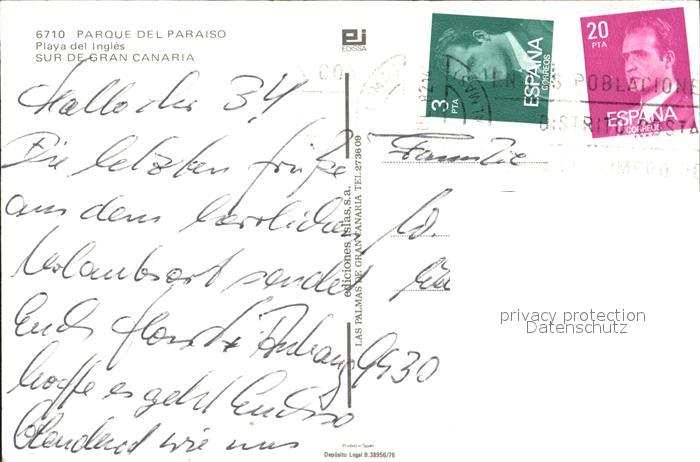 6710 PARQUE DEL PARAISO
Playa del Inglés
SUR DE GRAN CANARIA
Hallo ihr 3/4
Die letzten Grüße
aus dem herrlichen
Urlaubsort sendet
Euch Horst + Anhang
hoffe es geht Euch so
blendend wie uns
EDISSA
ediciones islas,s.a.
LAS PALMAS DE GRAN CANARIA TEL:273609
Printed in Spain
Depósito Legal B.38956/76
3 PTA
ESPAÑA
CORREOS
20 PTA
ESPAÑA
CORREOS
POBLACIONE
DISTRITO POSTA
NUMERO
Familie
W.
9930
privacy protection
Datenschutz